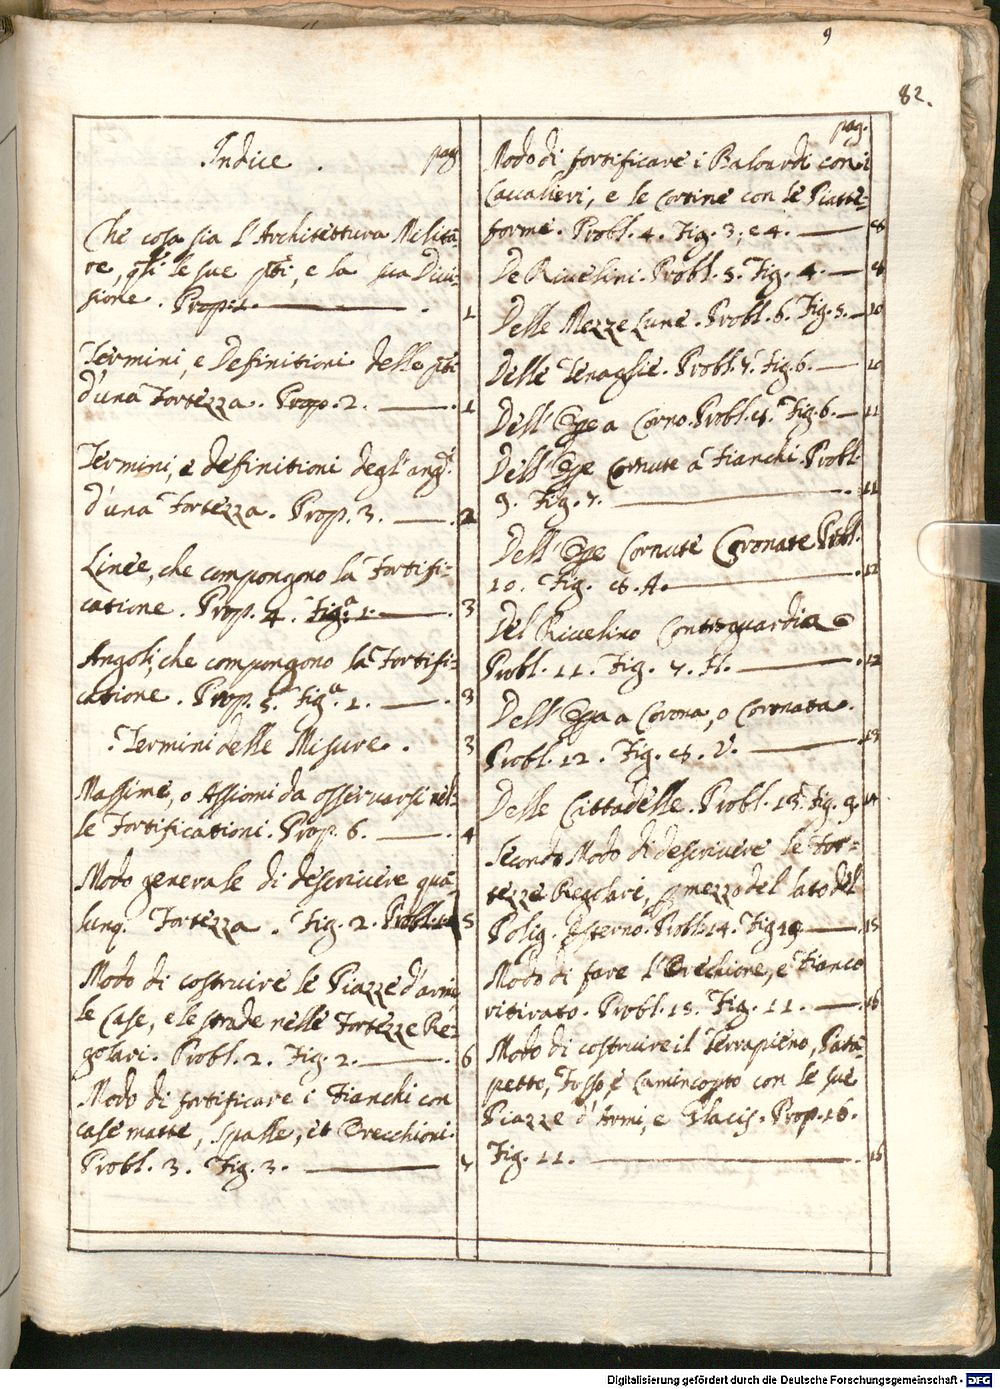 9
82.
Indice. pag
Che cosa sia l'Architettura Milita
re, q̃li le sue p̃ti, e la sua Diui-
sione. Prop. 1. 1
Termini, e Definitioni delle p̃ti
d'una Fortezza. Prop. 2. 1
Termini, e definitioni degl'ang.
d'una Fortezza. Prop. 3. 2
Linee, che compongono la Fortifi-
catione. Prop. 4. Fig.a 1. 3
Angoli, che compongono la Fortifi-
catione. Prop. 5. Fig.a 1. 3
Termini delle Misure. 3
Massime, o Assiomi da osseruarsi nel-
le Fortificationi. Prop. 6. 4
Modo generale di descriuere qua-
lunq. Fortezza. Fig. 2. Probl. 1. 5
Modo di costruire le Piazze d'armi
le Case, e le strade nelle Fortezze Re-
golari. Probl. 2. Fig. 2. 6
Modo di fortificare i Fianchi con
case matte, spalle, et Orecchioni.
Probl. 3. Fig. 3. 7
pag.
Modo di fortificare i Balouardi con i
Caccalieri, e le Cortine con le Piatte-
forme. Probl. 4. Fig. 3, e 4. 8
De Riuelini. Probl. 5. Fig. 4. 8
Delle Mezze Lune. Probl. 6. Fig. 5. 10
Delle Tenaglie. Probl. 7. Fig. 6. 10
Dell' Ope a Corno. Probl. 8. Fig. 6. 11
Dell' Ope Cornute à Fianchi. Probl.
9. Fig. 7. 11
Dell' Ope Cornute Coronate Probl.
10. Fig. 8. A. 12
Del Riuelino Contraguardia
Probl. 11. Fig. 7. H. 12
Dell' Opa a Corona, o Coronata.
Probl. 12. Fig. 8. V. 13
Delle Cittadelle. Probl. 13. Fig. 9 14
Secondo Modo di descriuere le For-
tezze Regolari, p mezzo del lato del
Polig. Esterno. Probl. 14. Fig 19 15
Modo di fare l'Orechione, e Fianco
ritirato. Probl. 15. Fig. 11. 16
Modo di costruire il Terrapieno, Para-
petto, Fosso, e Camincopto con le sue
Piazze d'Armi, e Glacis. Prop. 16.
Fig. 11. 16
Digitalisierung gefördert durch die Deutsche Forschungsgemeinschaft - DFG